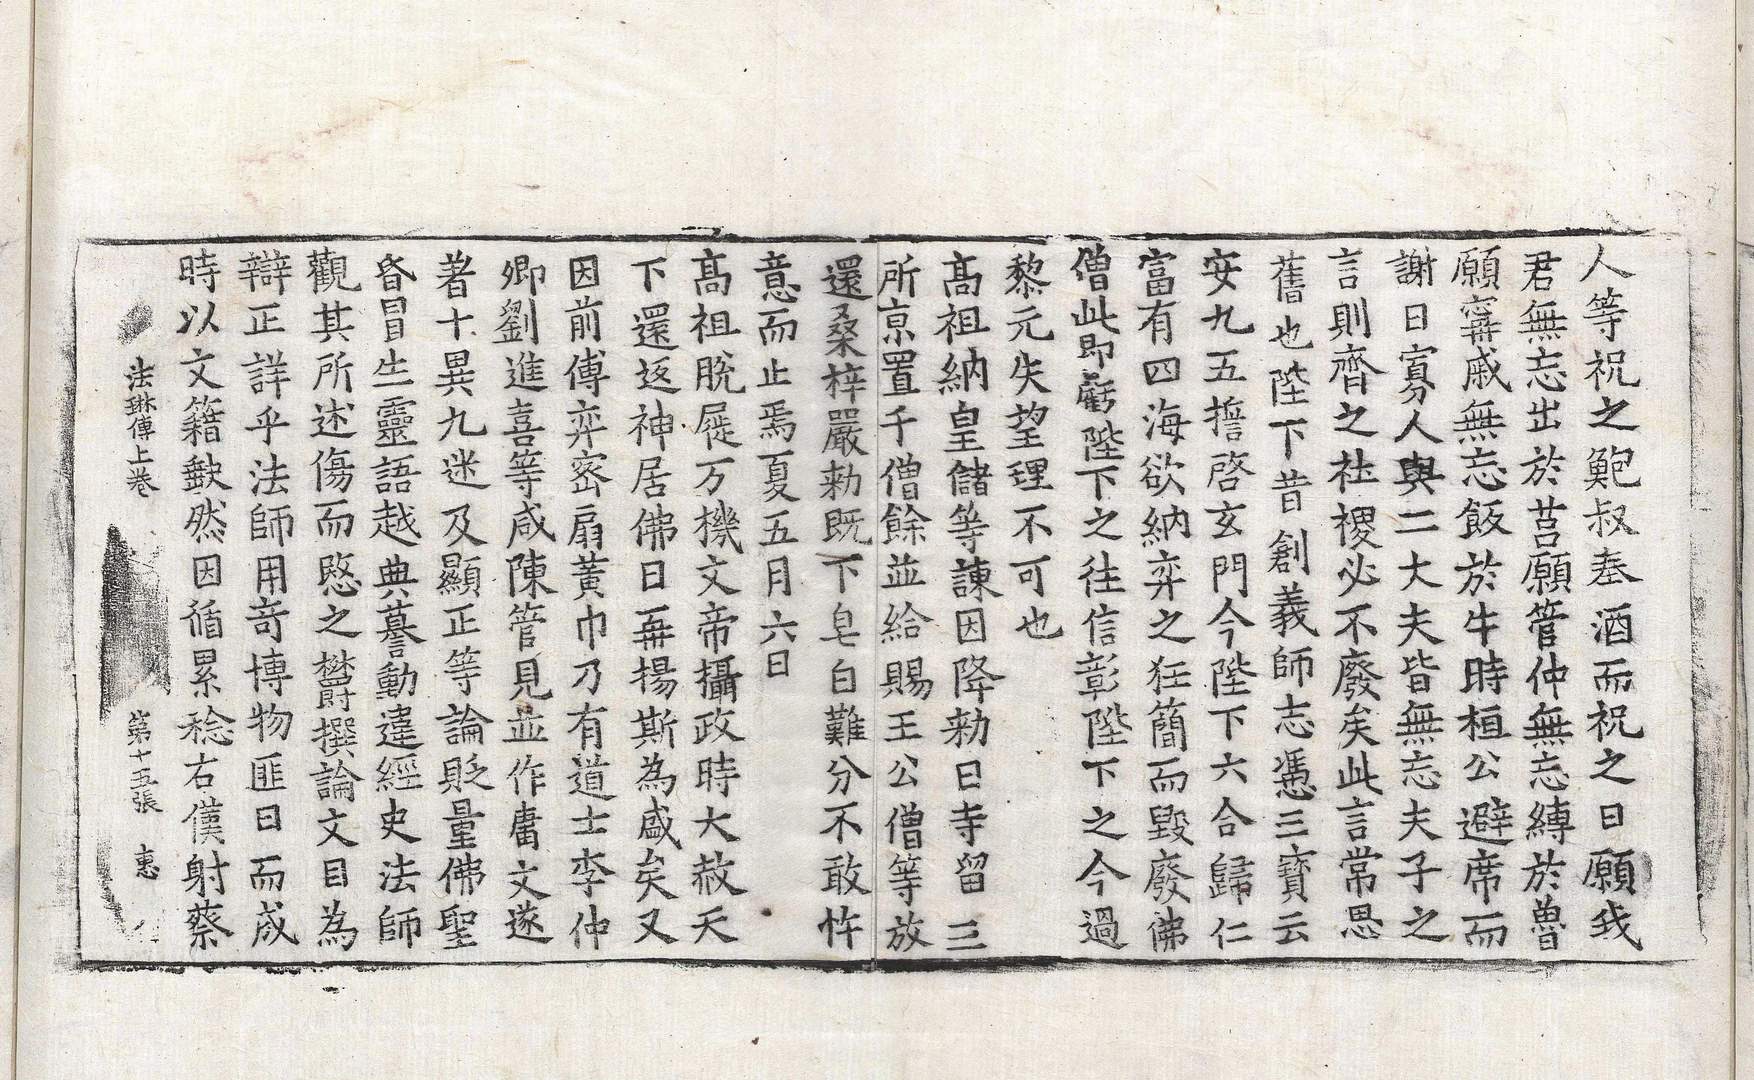 人等祝之鮑叔奉酒而祝之曰願我
君無忘出於莒願管仲無忘縛於魯
願甯戚無忘飯於牛時桓公避席而
謝曰寡人與二大夫皆無忘夫子之
言則齊之社稷必不廢矣此言常思
舊也陛下昔創義師志憑三寶云
安九五擔啓玄門今陛下六合歸仁
富有四海欲納弈之狂簡而毀廢佛
僧此即虧陛下之往信彰陛下之今過
黎元失望理不可也
高祖納皇儲等諫因降勑曰寺留三
所京置千僧餘並給賜王公僧等放
還桑梓嚴勑既下皂白難分不敢忤
意而止焉夏五月六日
高祖脫屣万機文帝攝政時大赦天
下還返神居佛日再揚斯為盛矣又
因前傅弈密扇黃巾乃有道士李仲
卿劉進喜等咸陳管見並作庸文遂
著十異九迷及顯正等論貶量佛聖
昏冒生靈語越典謩動違經史法師
觀其所述傷而愍之欝撰論文目為
辯正詳乎法師用竒博物匪日而成
時以文籍歀然因循累稔右僕射蔡
法琳傳上卷 第十五張 惠